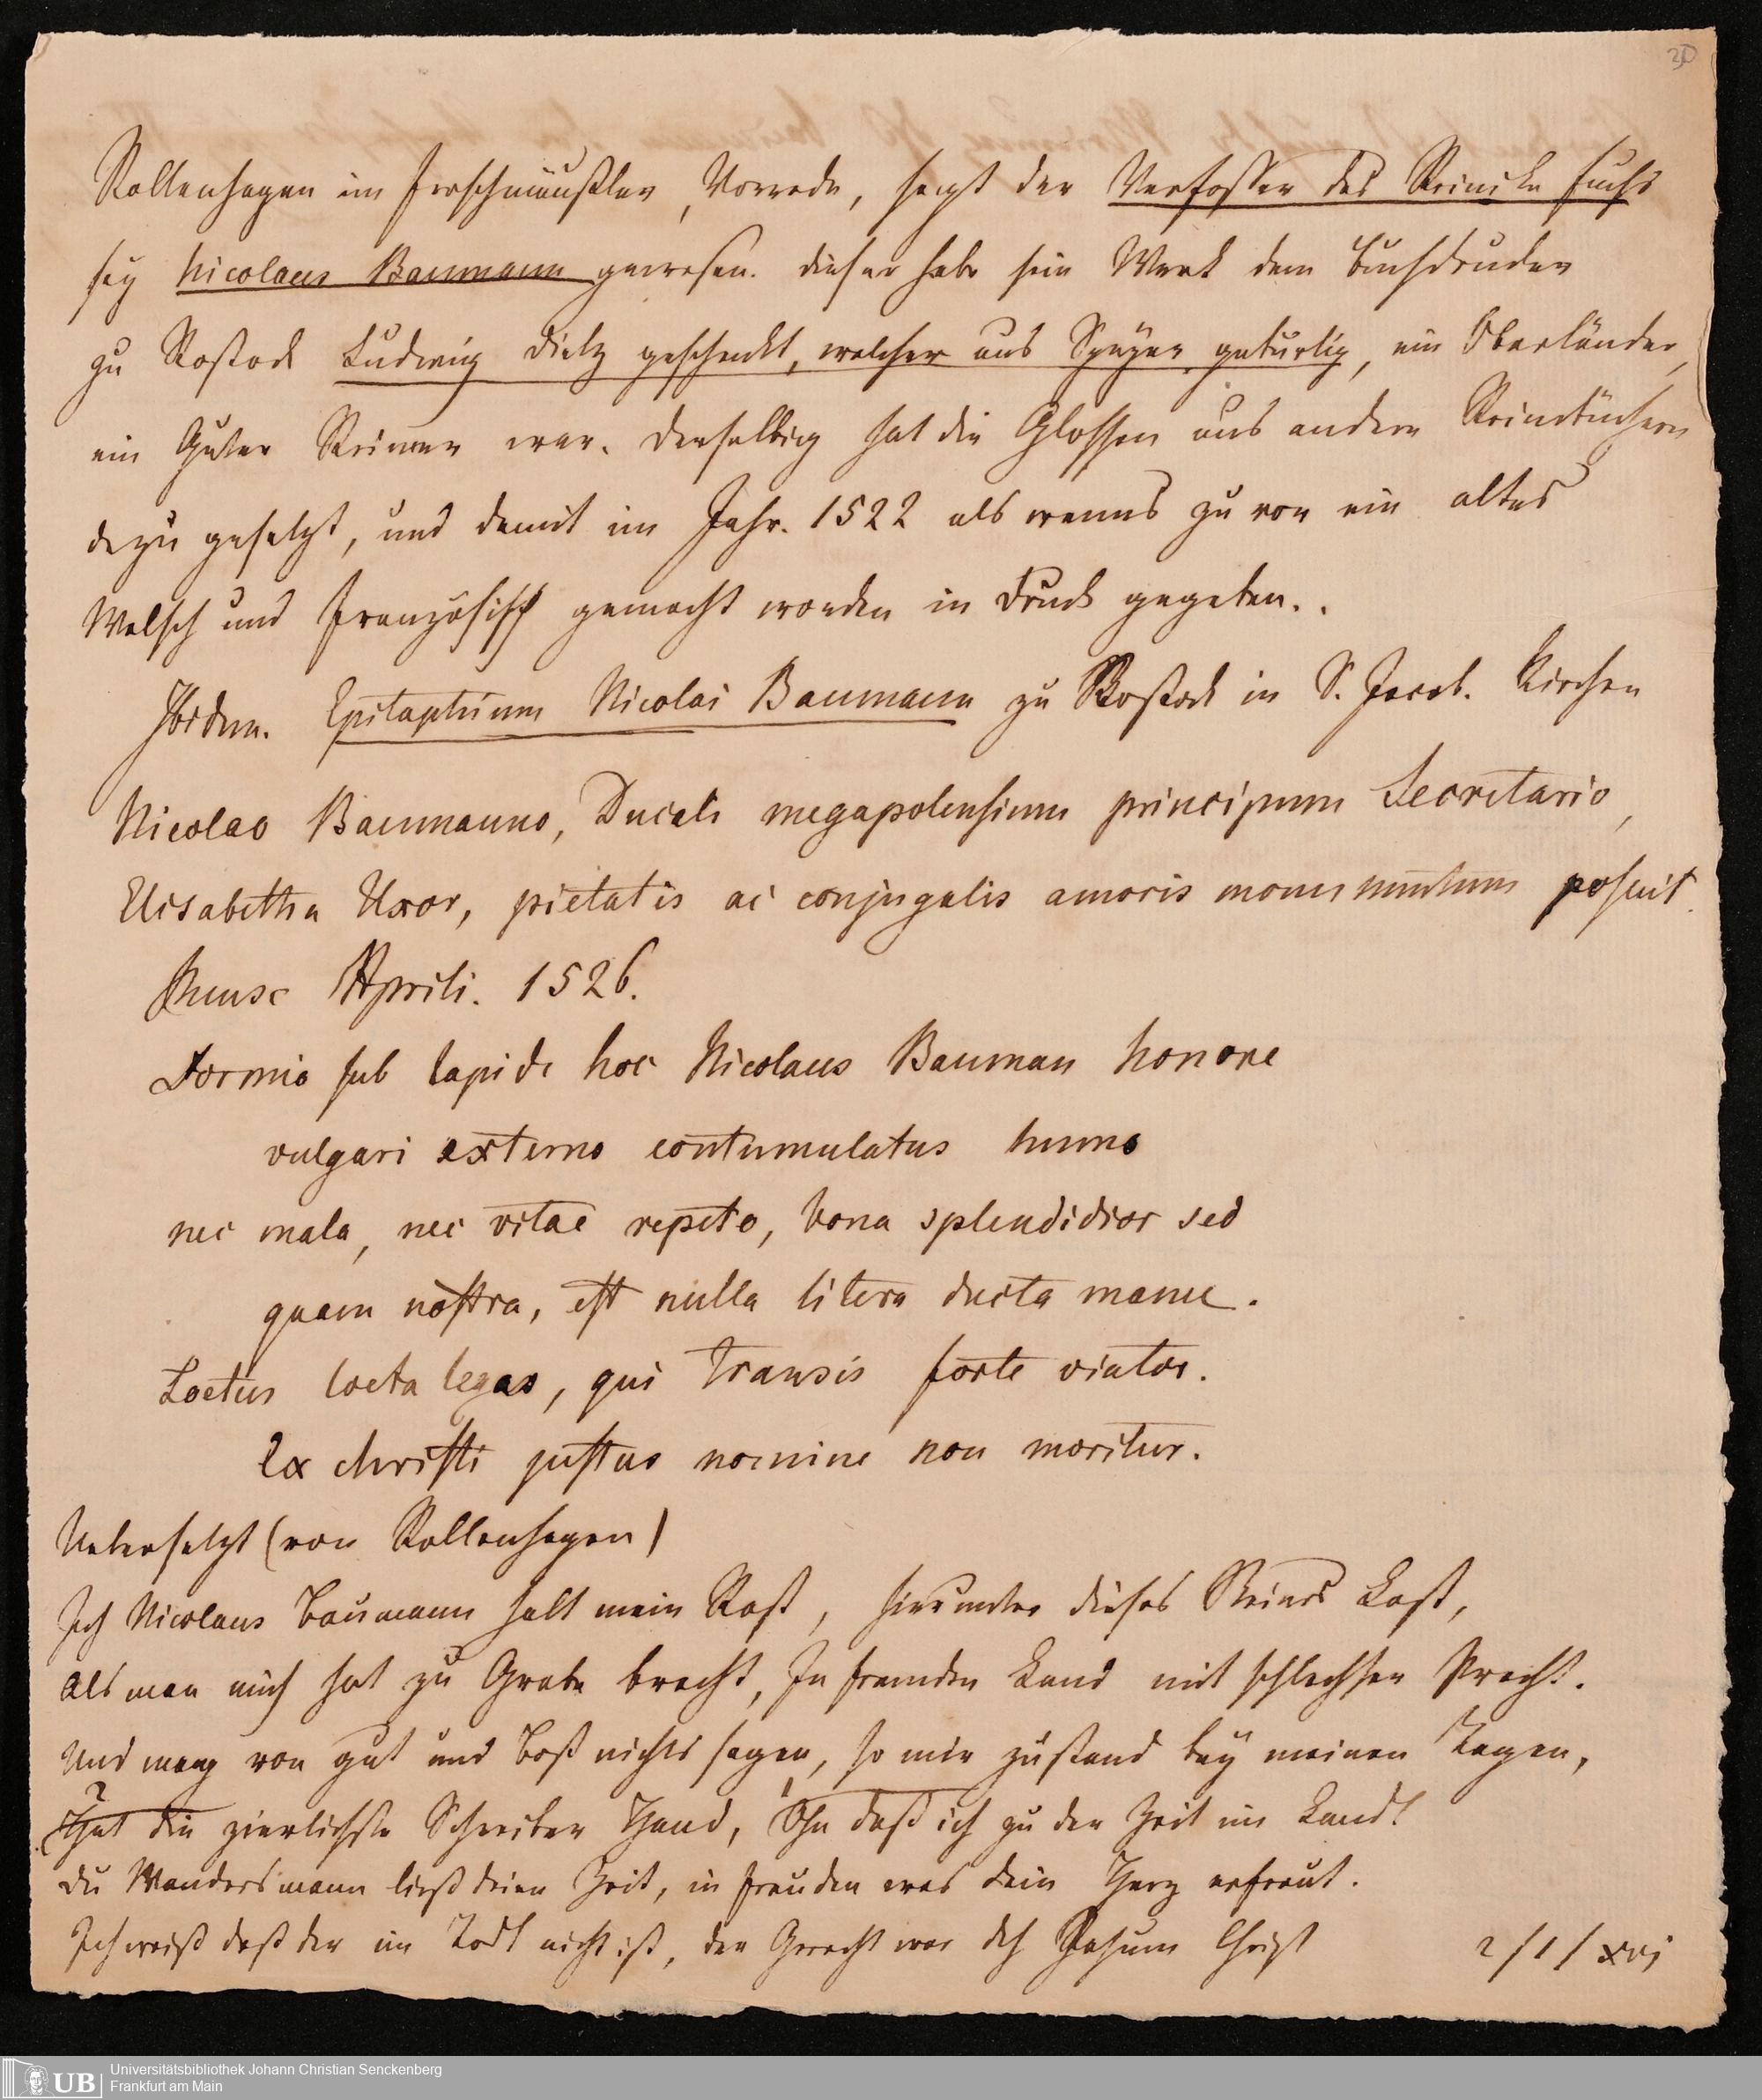 30
Rollenhagen im Froschmäußler, Vorrede, sagt der Verfasser des Reinike Fuchs
sey Nicolaus Baumann gewesen. dieser habe sein Werk dem Buchdrucker
zu Rostock Ludwig Dietz geschenkt, welcher aus Speyer gebürtig, ein Oberländer,
ein Guter Reimer war. derselbig hat die Glossen aus andern Reimbüchern
dazu gesetzt, und damit im Jahr. 1522 als wenns zu vor ein altes
Welsch und Französisch gemacht worden in Druck gegeben..
Ibidem. Epitaphium Nicolai Baumann zu Rostock in S. Jacob. Kirchen
Nicolao Baumanno, Ducali megapolensium principum Secretario,
Elisabetha Uxor, pietatis ac conjugalis amoris monumentum posuit.
Mense Aprili. 1526.
Dormio sub lapide hoc Nicolaus Bauman honore
vulgari externo contumulatus humo
nec mala, nec vitae repeto, bona splendidior sed
quam nostra, est nulla litera ducta manu.
Loetus loeta legas, qui transis forte viator.
Ex christi justus nomine non moritur.
Uebersetzt (von Rollenhagen)
Ich Nicolaus Baumann halt mein Rast, hierunter dieses Steines Last,
als man mich hat zu Grabe bracht, In fremden Land mit schlechter Pracht.
Und mag von gut und Boß nichts sagen, so mir zustand bey meinen Tagen,
?
That die zierlichste Schreiber Hand, Ohn daß ich zu der Zeit im Landt
du Wandersmann ließ deine Zeit, in freuden was dein Herz erfreut.
Ich weiß daß der im Todt nicht ist, der Gerecht war Jesum Christ
2/1/xvj
Universitätsbibliothek Johann Christian Senckenberg
UB
Frankfurt am Main